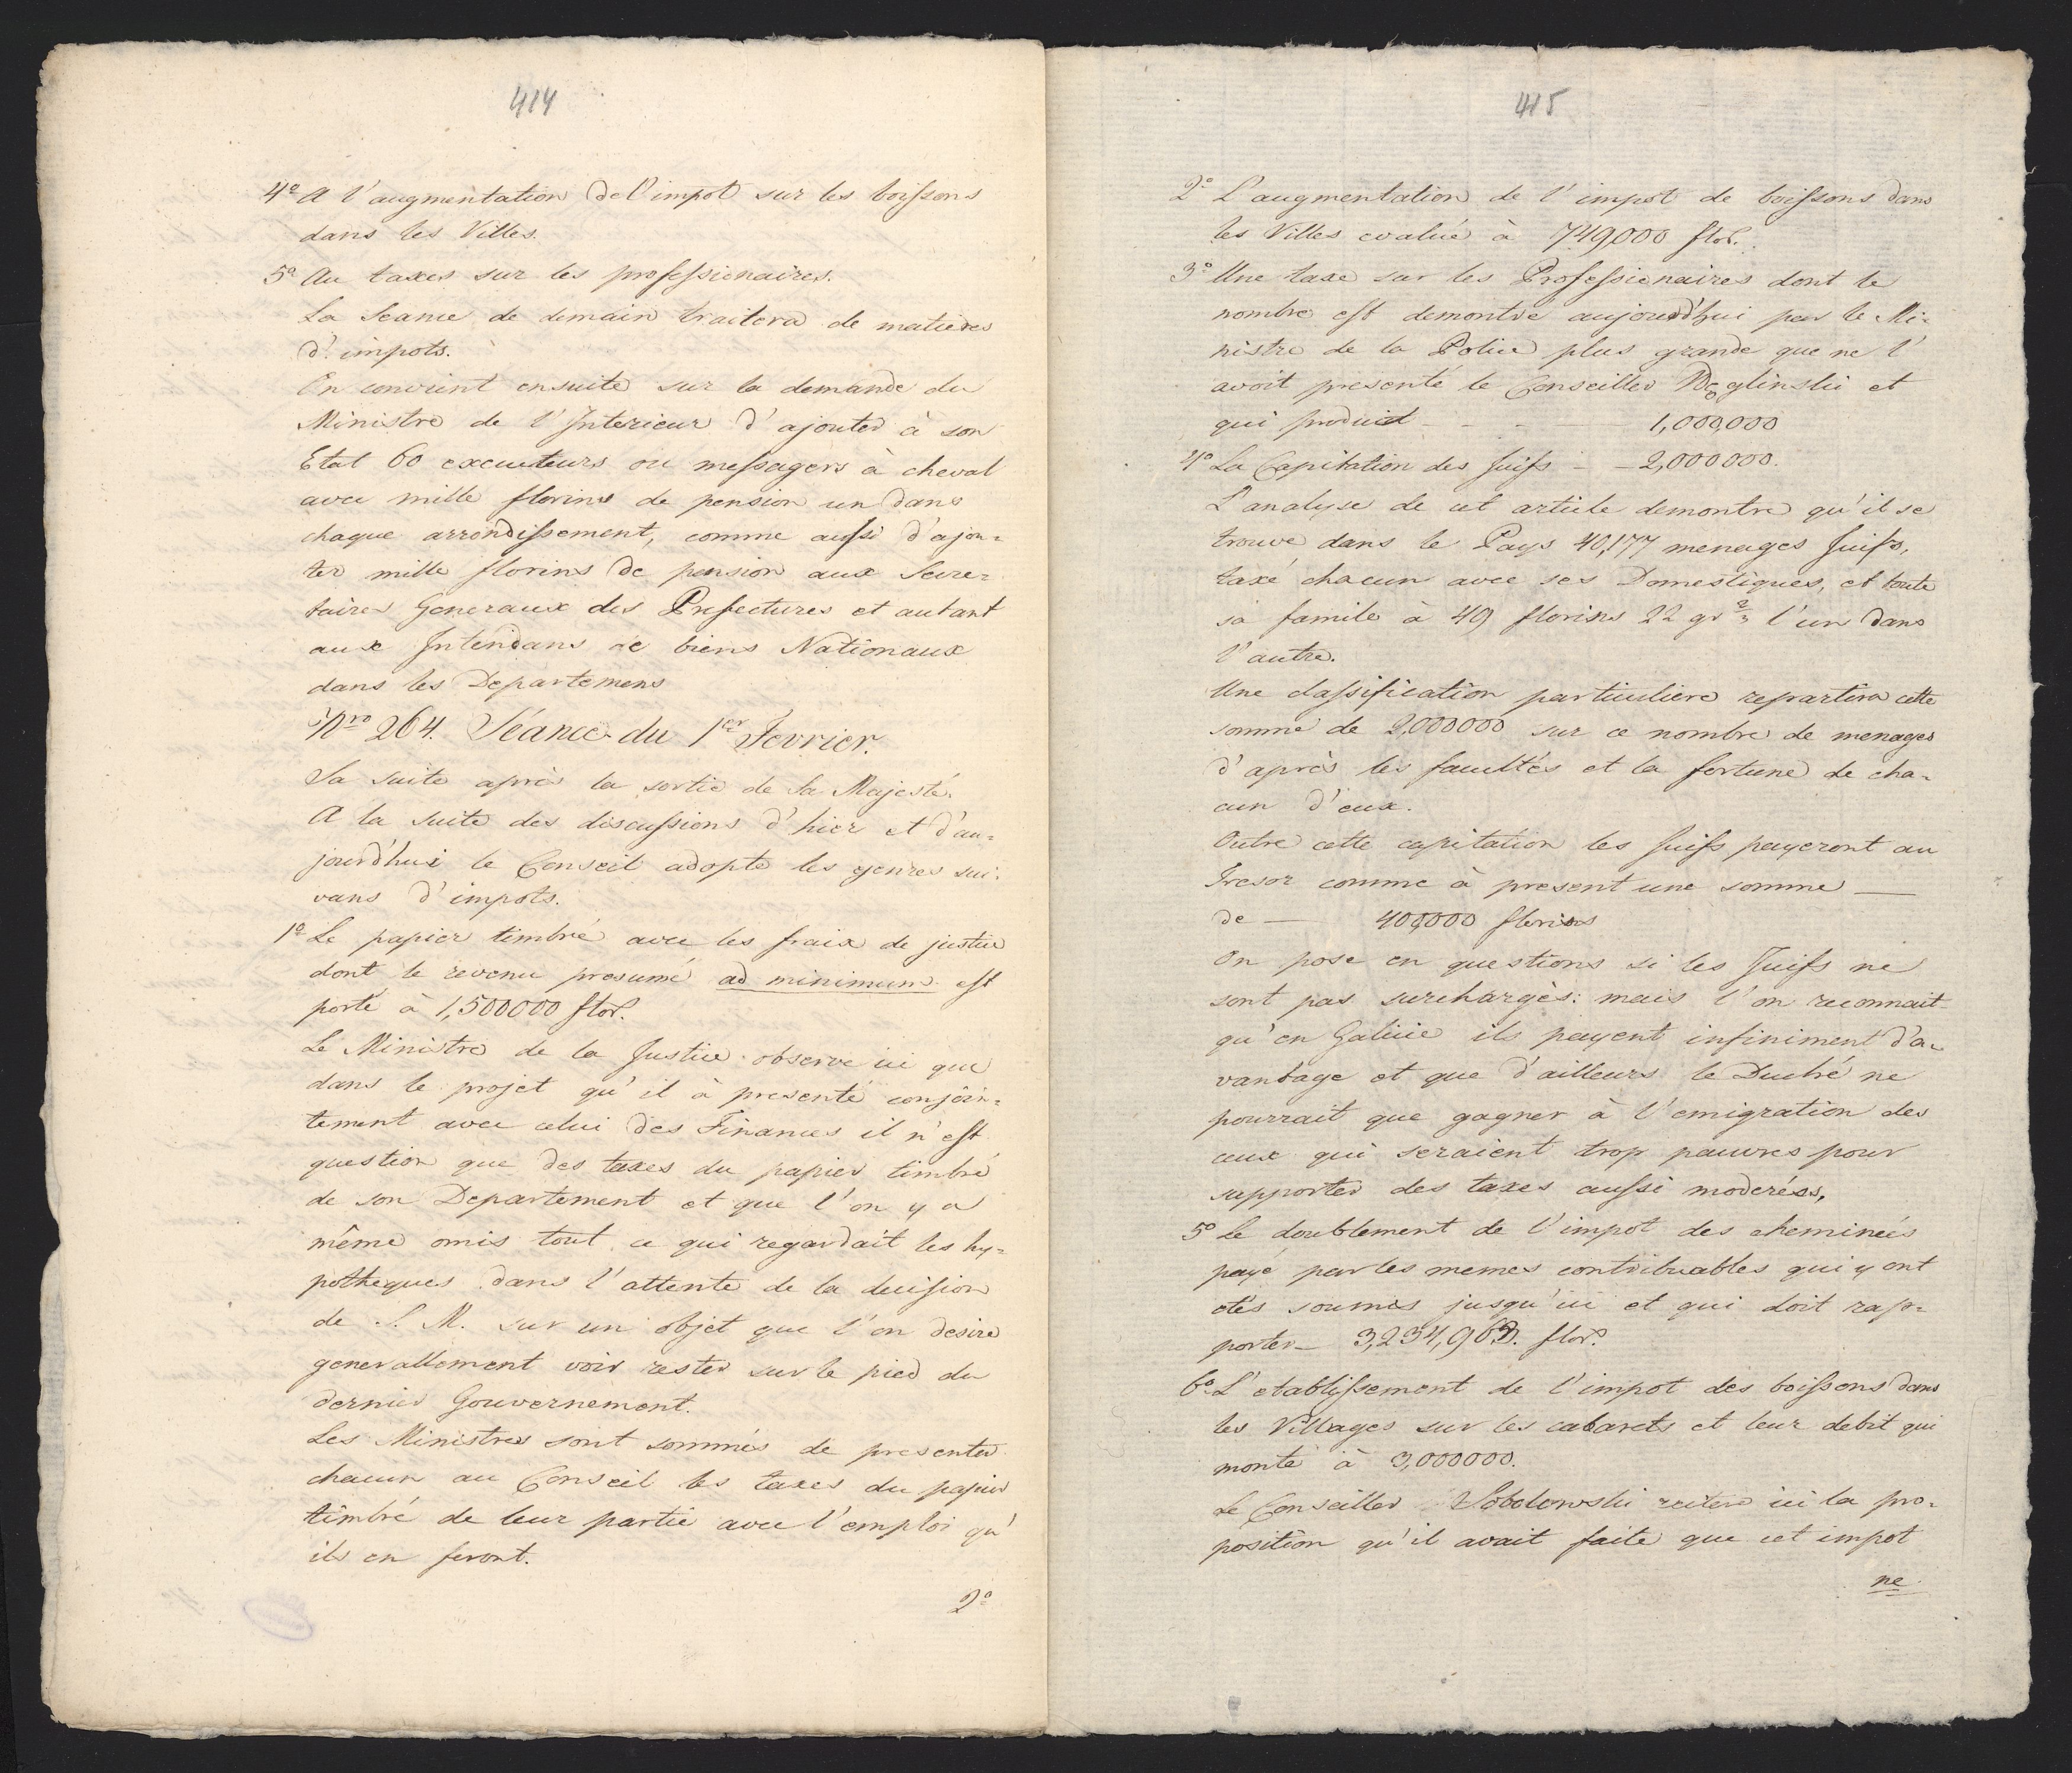 414
4º A l'augmentation de l'impot sur les boissons
dans les Villes.
5º Au taxes sur les professionaires.
La Seance de demain traitera de matieres
d'impots.
On convint ensuite sur la demande du
Ministre de l'Interieur d'ajouter à son
Etat 60 executeurs ou messagers à cheval
avec mille florins de pension un dans
chaque arrondissement, comme aussi d'ajou=
ter mille florins de pension aux Secre=
taires Generaux des Prefectures et autant
aux Intendans de biens Nationaux
dans les Departemens
Nro 264. Séance du 1er Fevrier.
La suite après la sortie de Sa Majesté.
A la suite des discussions d'hier et d'au=
jourd'hui le Conseil adopte les genres sui=
vans d'impots.
1º Le papier timbré avec les fraix de justice
dont le revenu presumé ad minimum est
porté à 1,500000 flor.
Le Ministre de la Justice observe ici que
dans le projet qu'il à presenté conjoin=
tement avec celui des Finances il n'est
question que des taxes du papier timbré
de son Departement et que l'on y a
même omis tout ce qui regardait les hy=
potheques dans l'attente de la decision
de S. M. sur un objet que l'on desire
generallement voir rester sur le pied du
dernier Gouvernement.
Les Ministres sont sommés de presenter
chacun au Conseil les taxes du papier
timbré de leur partie avec l'emploi qu'
ils en feront.
2º
415
2º L'augmentation de l'impot de boissons dans
les Villes evalué à 749,000 flor.
3º Une taxe sur les Professionaires dont le
nombre est demontré aujourd'hui par le Mi=
nistre de la Police plus grande que ne l'
avoit presenté le Conseiller Węglinski et
qui produit - - - 1,000,000
4º La Capitation des Juifs - - 2,000000.
L'analyse de cet article demontre qu'il se
trouve dans le Pays 40,177 menages Juifs,
taxé chacun avec ses Domestiques, et toute
sa famile à 49 florins 22 gr l'un dans
l'autre.
Une classification particuliere repartira cette
somme de 2,000000 sur ce nombre de menages
d'après les facultés et la fortune de cha=
cun d'eux.
Outre cette capitation les Juifs payeront au
Tresor comme à present une somme —
de — 400,000 florins
On pose en questions si les Juifs ne
sont pas surchargès: mais l'on reconnait
qu'en Galicie ils payent infiniment d'a=
vantage et que d'ailleurs le Duché ne
pourrait que gagner à l'emigration des
ceux qui seraient trop pauvres pour
supporter des taxes aussi moderées,
5º le doublement de l'impot des cheminées
payé par les memes contribuables qui y ont
etés soumis jusqu'ici et qui doit rap=
porter - flor.
6º L'etablissement de l'impot des boissons dans
les Villages sur les cabarets et leur debit qui
monte à 3,000000.
Le Conseiller Sobolewski reitere ici la pro=
position qu'il avait faite que cet impot
ne